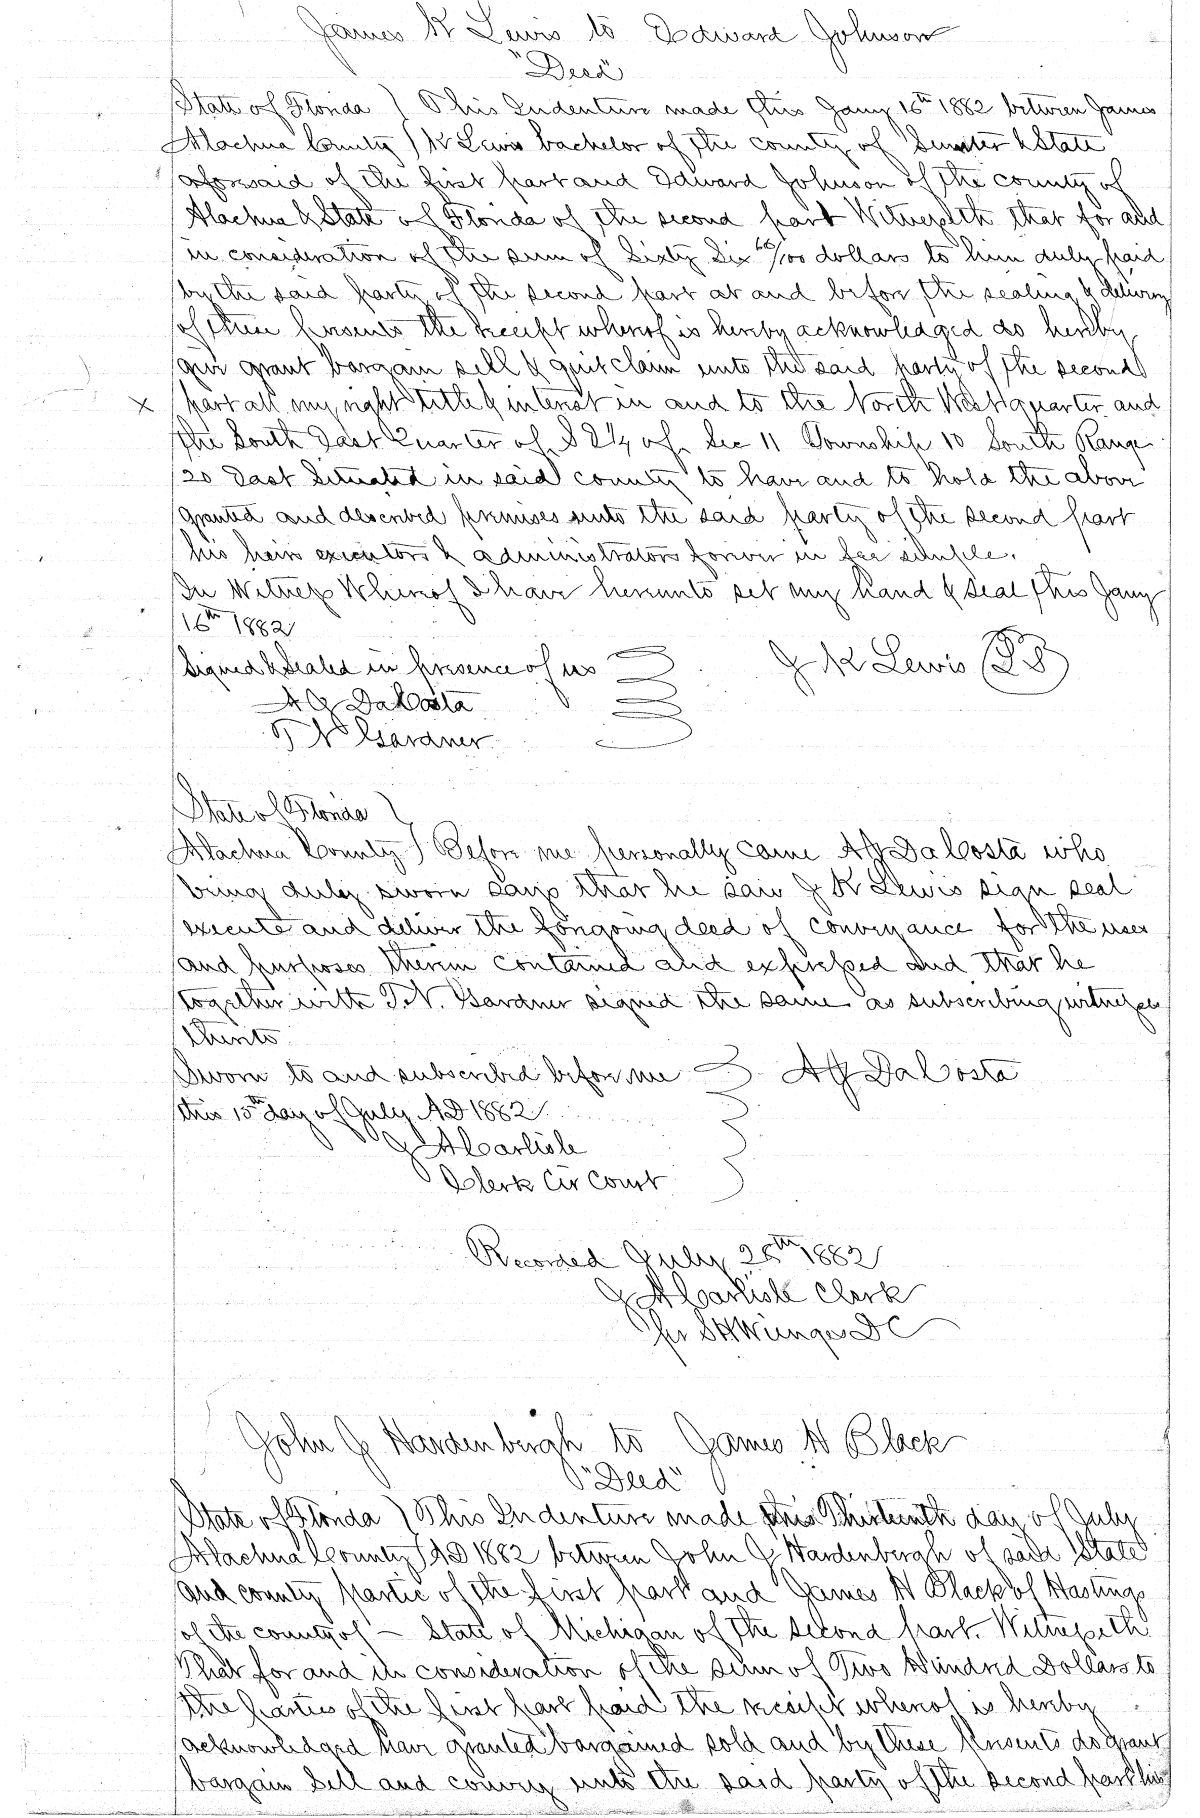 James K Lewis to Edward Johnson
"Deed"
State of Florida ) This Indenture made this Jany 16th 1882 between James
Alachua County ) K Lewis bachelor of the county of Sumter & State
aforesaid of the first part and Edward Johnson of the county of
Alachua & State of Florida of the second part Witnesseth that for and
in consideration of the sum of Sixty Six 66/100 dollars to him duly paid
by the said party of the second part at and before the sealing & delivery
of these presents the receipt whereof is hereby acknowledged do hereby
give grant bargain sell & quit claim unto the said party of the second
x part all my right title & interest in and to the North West quarter and
the South East Quarter of S E 1/4 of Sec 11 Township 10 South Range
20 East Situated in said county to have and to hold the above
granted and described premises unto the said party of the second part
his heirs executors & administrators forever in fee simple.
In Witness Whereof I have hereunto set my hand & seal this Jany
16th 1882
Signed & Sealed in presence of us J K Lewis (LS)
A G DaCosta
T N Gardner
State of Florida )
Alachua County ) Before me personally came A G DaCosta who
being duly sworn says that he saw J K Lewis sign seal
execute and deliver the foregoing deed of conveyance for the uses
and purposes therein contained and expressed and that he
together with T.N. Gardner signed the same as subscribing witnesses
thereto
Sworn to and subscribed before me A G DaCosta
this 15th day of July AD 1882
J A Carlisle
Clerk Cir Court
Recorded July 28th 1882
J A Carlisle Clerk
per S H Wienges DC
John J Hardenbergh to James H Black
"Deed"
State of Florida ) This Indenture made this Thirteenth day of July
Alachua County ) AD 1882 between John J Hardenbergh of said State
and county partie of the first part and James H Black of Hastings
of the county of — State of Michigan of the second part. Witnesseth
That for and in consideration of the sum of Two Hundred Dollars to
the parties of the first part paid the receipt whereof is hereby
acknowledged have granted bargained sold and by these presents do grant
bargain sell and convey unto the said party of the second part his